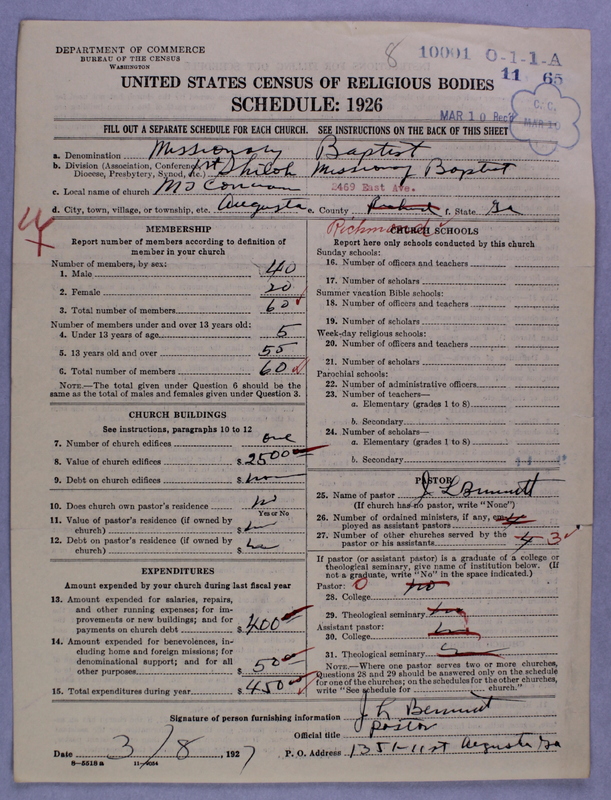 DEPARTMENT OF COMMERCE
BUREAU OF THE CENSUS
WASHINGTON
8 10001 0-1-1-A
11 65
UNITED STATES CENSUS OF RELIGIOUS BODIES
SCHEDULE: 1926
MAR 10 Rec'd
C. C.
MAR 10
FILL OUT A SEPARATE SCHEDULE FOR EACH CHURCH. SEE INSTRUCTIONS ON THE BACK OF THIS SHEET
a. Denomination Missionary Baptist
b. Division (Association, Conference, Diocese, Presbytery, Synod, etc.) Shiloh Missionary Baptist
c. Local name of church 2469 East Ave.
d. City, town, village, or township, etc. Augusta e. County Richmond f. State Ga
MEMBERSHIP
Report number of members according to definition of
member in your church
Number of members, by sex:
1. Male 40
2. Female 20
3. Total number of members 60
Number of members under and over 13 years old:
4. Under 13 years of age 5
5. 13 years old and over 55
6. Total number of members 60
NOTE.—The total given under Question 6 should be the
same as the total of males and females given under Question 3.
CHURCH BUILDINGS
See instructions, paragraphs 10 to 12
7. Number of church edifices one
8. Value of church edifices $ 2500
9. Debt on church edifices $
10. Does church own pastor's residence no
Yes or No
11. Value of pastor's residence (if owned by
church) $
12. Debt on pastor's residence (if owned by
church) $
EXPENDITURES
Amount expended by your church during last fiscal year
13. Amount expended for salaries, repairs,
and other running expenses; for im-
provements or new buildings; and for
payments on church debt $ 400
14. Amount expended for benevolences, in-
cluding home and foreign missions; for
denominational support; and for all
other purposes $ 50
15. Total expenditures during year $ 450
CHURCH SCHOOLS
Report here only schools conducted by this church
Sunday schools:
16. Number of officers and teachers
17. Number of scholars
Summer vacation Bible schools:
18. Number of officers and teachers
19. Number of scholars
Week-day religious schools:
20. Number of officers and teachers
21. Number of scholars
Parochial schools:
22. Number of administrative officers
23. Number of teachers—
a. Elementary (grades 1 to 8)
b. Secondary
24. Number of scholars—
a. Elementary (grades 1 to 8)
b. Secondary
PASTOR
25. Name of pastor J L Bennett
(If church has no pastor, write "None")
26. Number of ordained ministers, if any, em-
ployed as assistant pastors
27. Number of other churches served by the
pastor or his assistants 4 3
If pastor (or assistant pastor) is a graduate of a college or
theological seminary, give name of institution below. (If
not a graduate, write "No" in the space indicated.)
Pastor: 0
28. College no
29. Theological seminary
Assistant pastor:
30. College
31. Theological seminary
NOTE.—Where one pastor serves two or more churches,
Questions 28 and 29 should be answered only on the schedule
for one of the churches; on the schedules for the other churches,
write "See schedule for church."
Signature of person furnishing information J. L. Bennett
Official title pastor
Date 3/8, 1927 P. O. Address 1351-11 st Augusta Ga
8—5518 a 11—9054